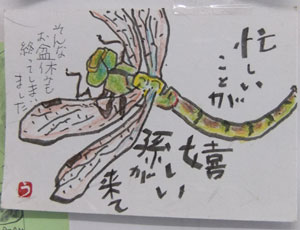 忙しい
ことが
嬉しい
孫が
来て
そんな
お盆休みも
終ってしまい
ました
う